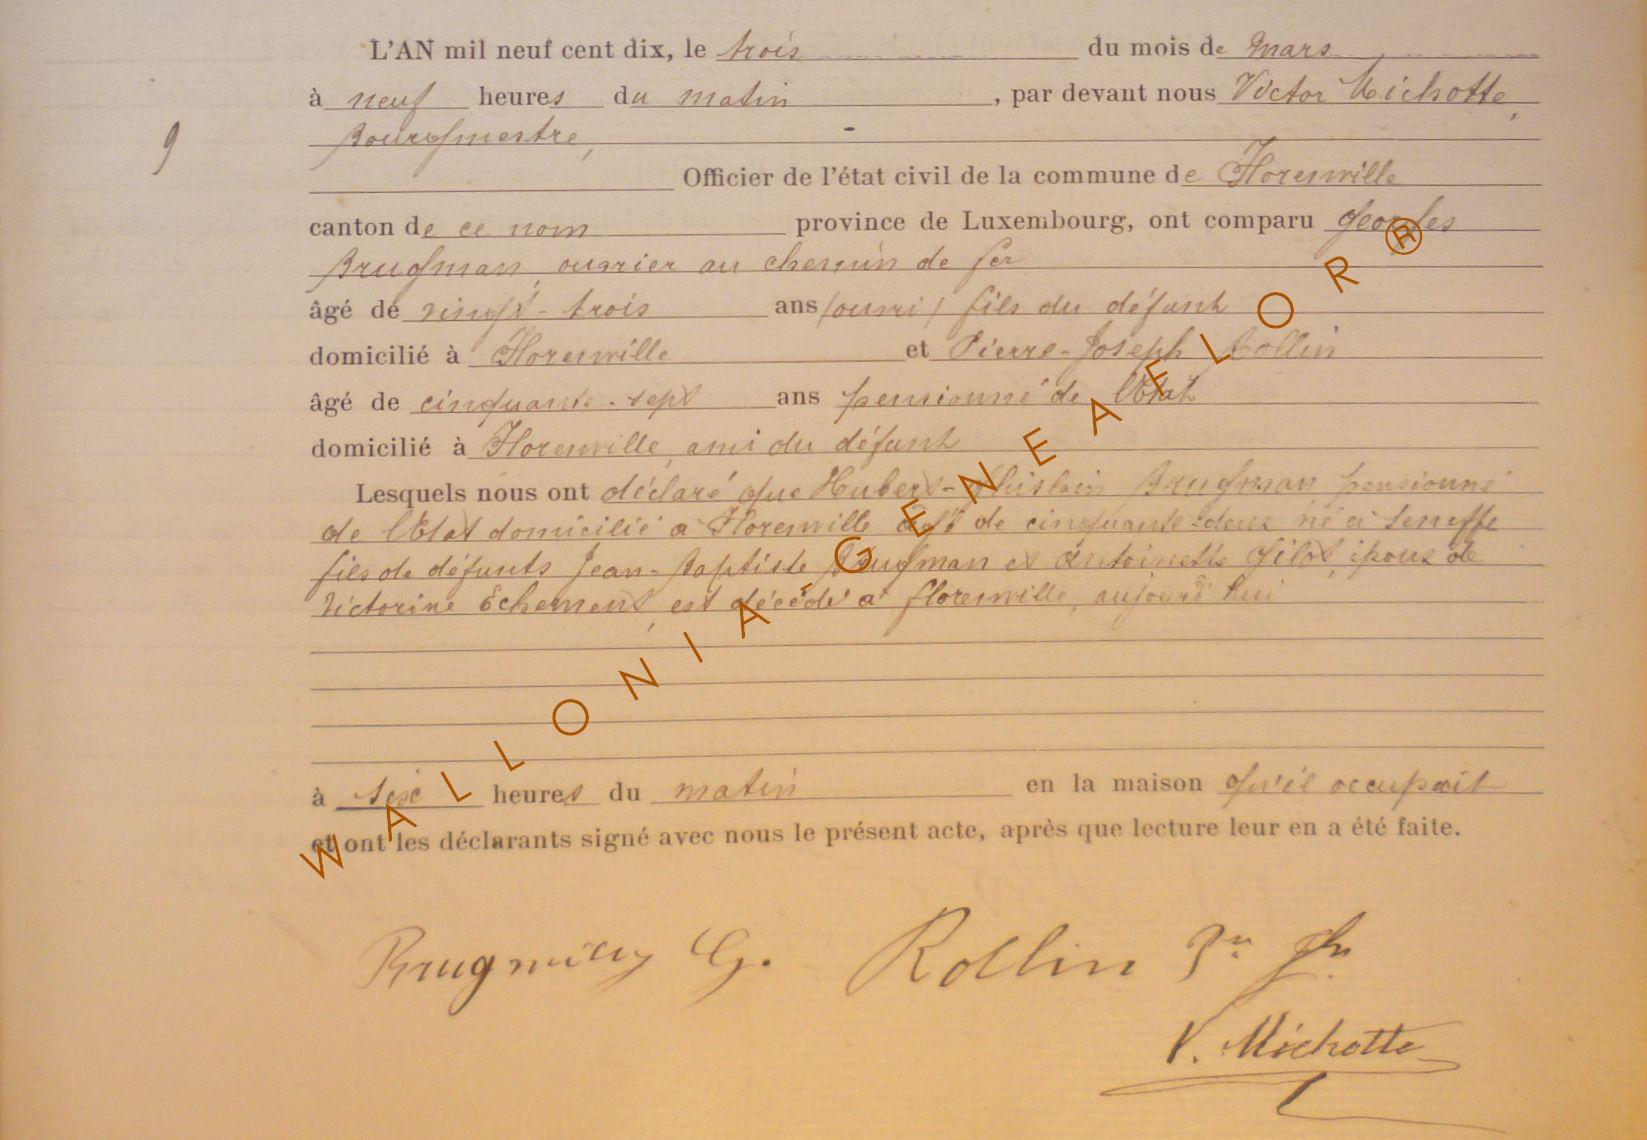 L'AN mil neuf cent dix, le trois du mois de mars
à neuf heures du matin, par devant nous Victor Michotte,
9
Bourgmestre,
Officier de l'état civil de la commune de Florenville
canton de ce nom province de Luxembourg, ont comparu Georges
Brugman, ouvrier au chemin de fer
âgé de vingt-trois ans fils du défunt
domicilié à Florenville et Pierre-Joseph Collin
âgé de cinquante-sept ans pensionné de l'Etat
domicilié à Florenville, ami du défunt
Lesquels nous ont déclaré que Hubert-Ghislain Brugman pensionné
de l'Etat domicilié à Florenville âgé de cinquante-deux né à Seneffe
fils de défunts Jean-Baptiste Brugman et Antoinette Gilot, époux de
Victorine Echement, est décédé à Florenville, aujourd'hui
à six heures du matin en la maison qu'il occupait
et ont les déclarants signé avec nous le présent acte, après que lecture leur en a été faite.
Brugman G. Rollin
V. Michotte
WALLONIA-GENEAFLOR®